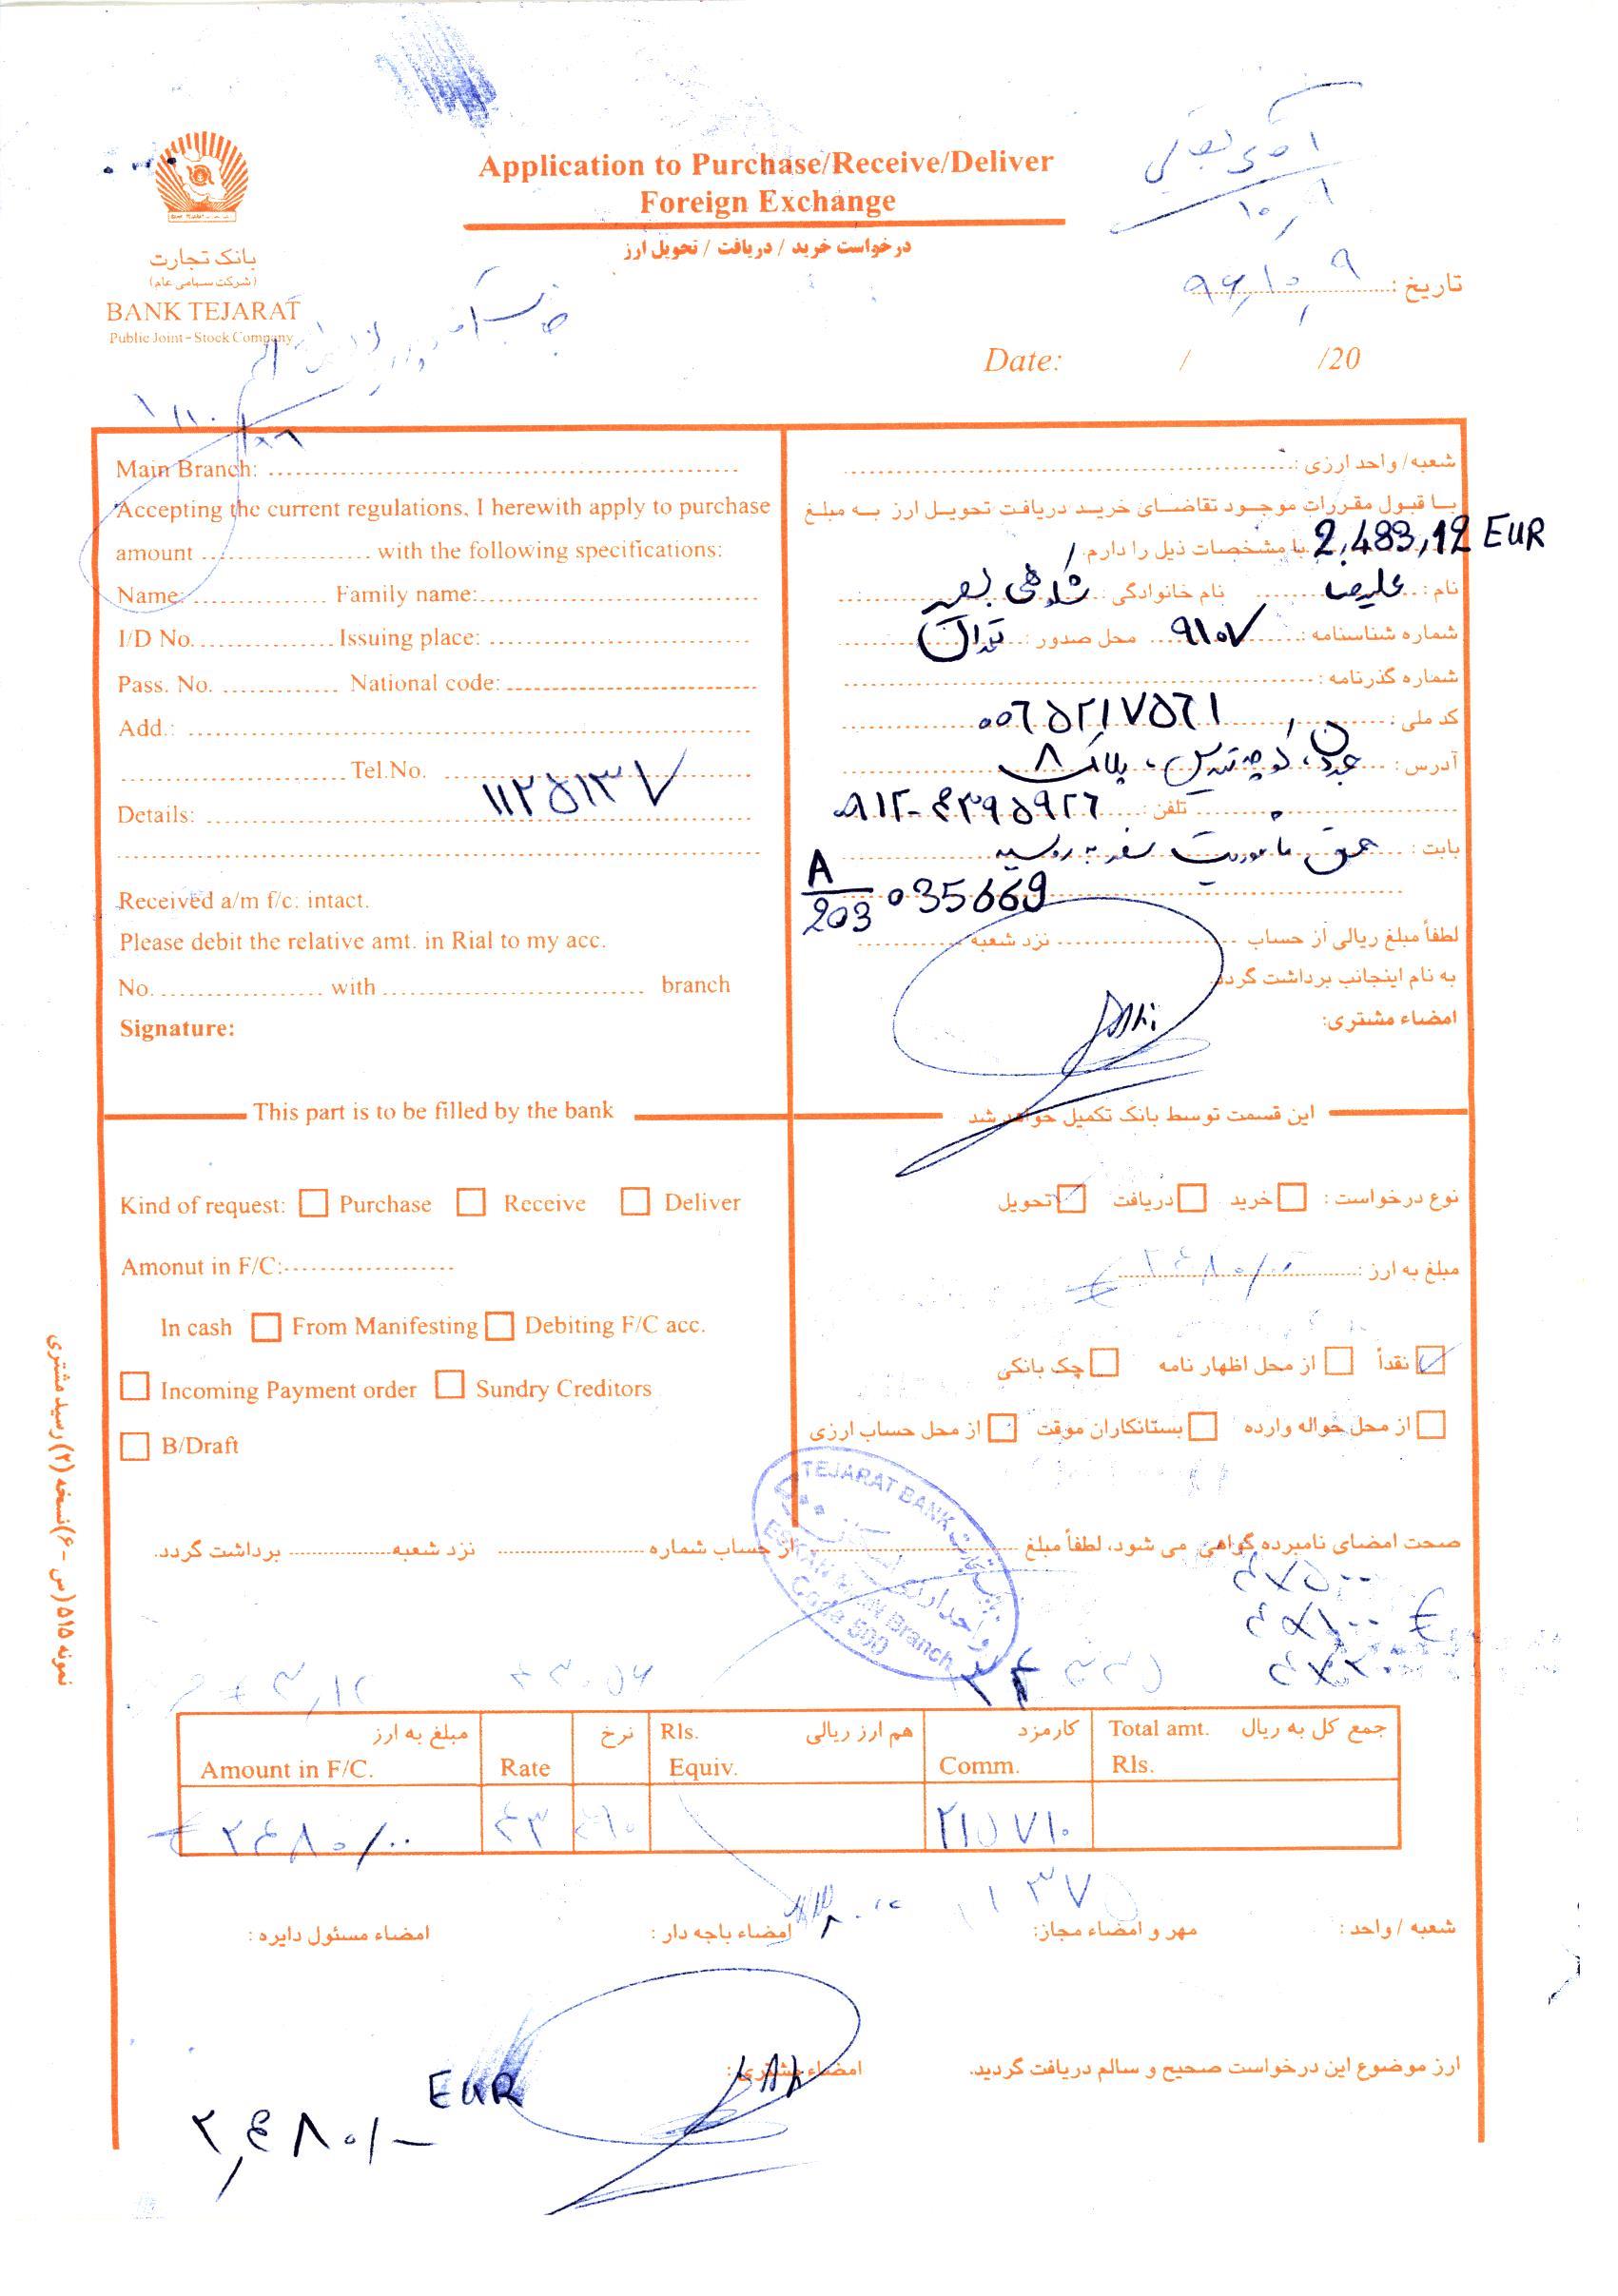 Application to Purchase/Receive/Deliver
Foreign Exchange
درخواست خرید / دریافت / تحویل ارز
بانک تجارت
(شرکت سهامی عام)
BANK TEJARAT
Public Joint-Stock Company
تاریخ : ۹۶/۱۰/۹
Date: / /20
شعبه/ واحد ارزی :
با قبول مقررات موجود تقاضای خرید دریافت تحویل ارز به مبلغ
2,483,12 EUR با مشخصات ذیل را دارم.
نام : علیرضا نام خانوادگی :
شماره شناسنامه : ۹۱۰۷ محل صدور : تهران
شماره گذرنامه :
کد ملی : ۰۰۶۵۲۱۷۵۶۱
آدرس : پلاک ۸
تلفن : ۰۹۱۲-۴۳۹۵۹۲۶
بابت : حق ماموریت سفر به روسیه
A/203 035669
لطفاً مبلغ ریالی از حساب نزد شعبه
به نام اینجانب برداشت گردد.
امضاء مشتری:
Main Branch:
Accepting the current regulations, I herewith apply to purchase
amount with the following specifications:
Name: Family name:
I/D No. Issuing place:
Pass. No. National code:
Add.:
Tel.No.
۱۱۲۵۱۳۷
Details:
Received a/m f/c: intact.
Please debit the relative amt. in Rial to my acc.
No. with branch
Signature:
این قسمت توسط بانک تکمیل خواهد شد
نوع درخواست : خرید دریافت تحویل
مبلغ به ارز : ۲۴۸۰/۰۰ €
نقداً از محل اظهار نامه چک بانکی
از محل حواله وارده بستانکاران موقت از محل حساب ارزی
This part is to be filled by the bank
Kind of request: Purchase Receive Deliver
Amonut in F/C:
In cash From Manifesting Debiting F/C acc.
Incoming Payment order Sundry Creditors
B/Draft
TEJARAT BANK
ESKAN Branch
Code 500
صحت امضای نامبرده گواهی می شود، لطفاً مبلغ از حساب شماره نزد شعبه برداشت گردد.
مبلغ به ارز نرخ Rls. هم ارز ریالی کارمزد Total amt. جمع کل به ریال
Amount in F/C. Rate Equiv. Comm. Rls.
€ ۲۴۸۰/۰۰ ۴۳ ۴۱۰ ۲۱۵۷۱۰
شعبه / واحد : مهر و امضاء مجاز: امضاء باجه دار : امضاء مسئول دایره :
ارز موضوع این درخواست صحیح و سالم دریافت گردید. امضاء مشتری :
۲,۴۸۰/- EUR
نمونه ۵۱۵ (س -۶) نسخه (۲) رسید مشتری